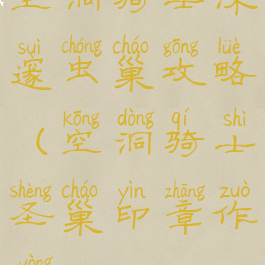 空洞骑士深
suì chóng cháo gōng lüè
邃虫巢攻略
kōng dòng qí shì
（空洞骑士
shèng cháo yìn zhāng zuò
圣巢印章作
yòng